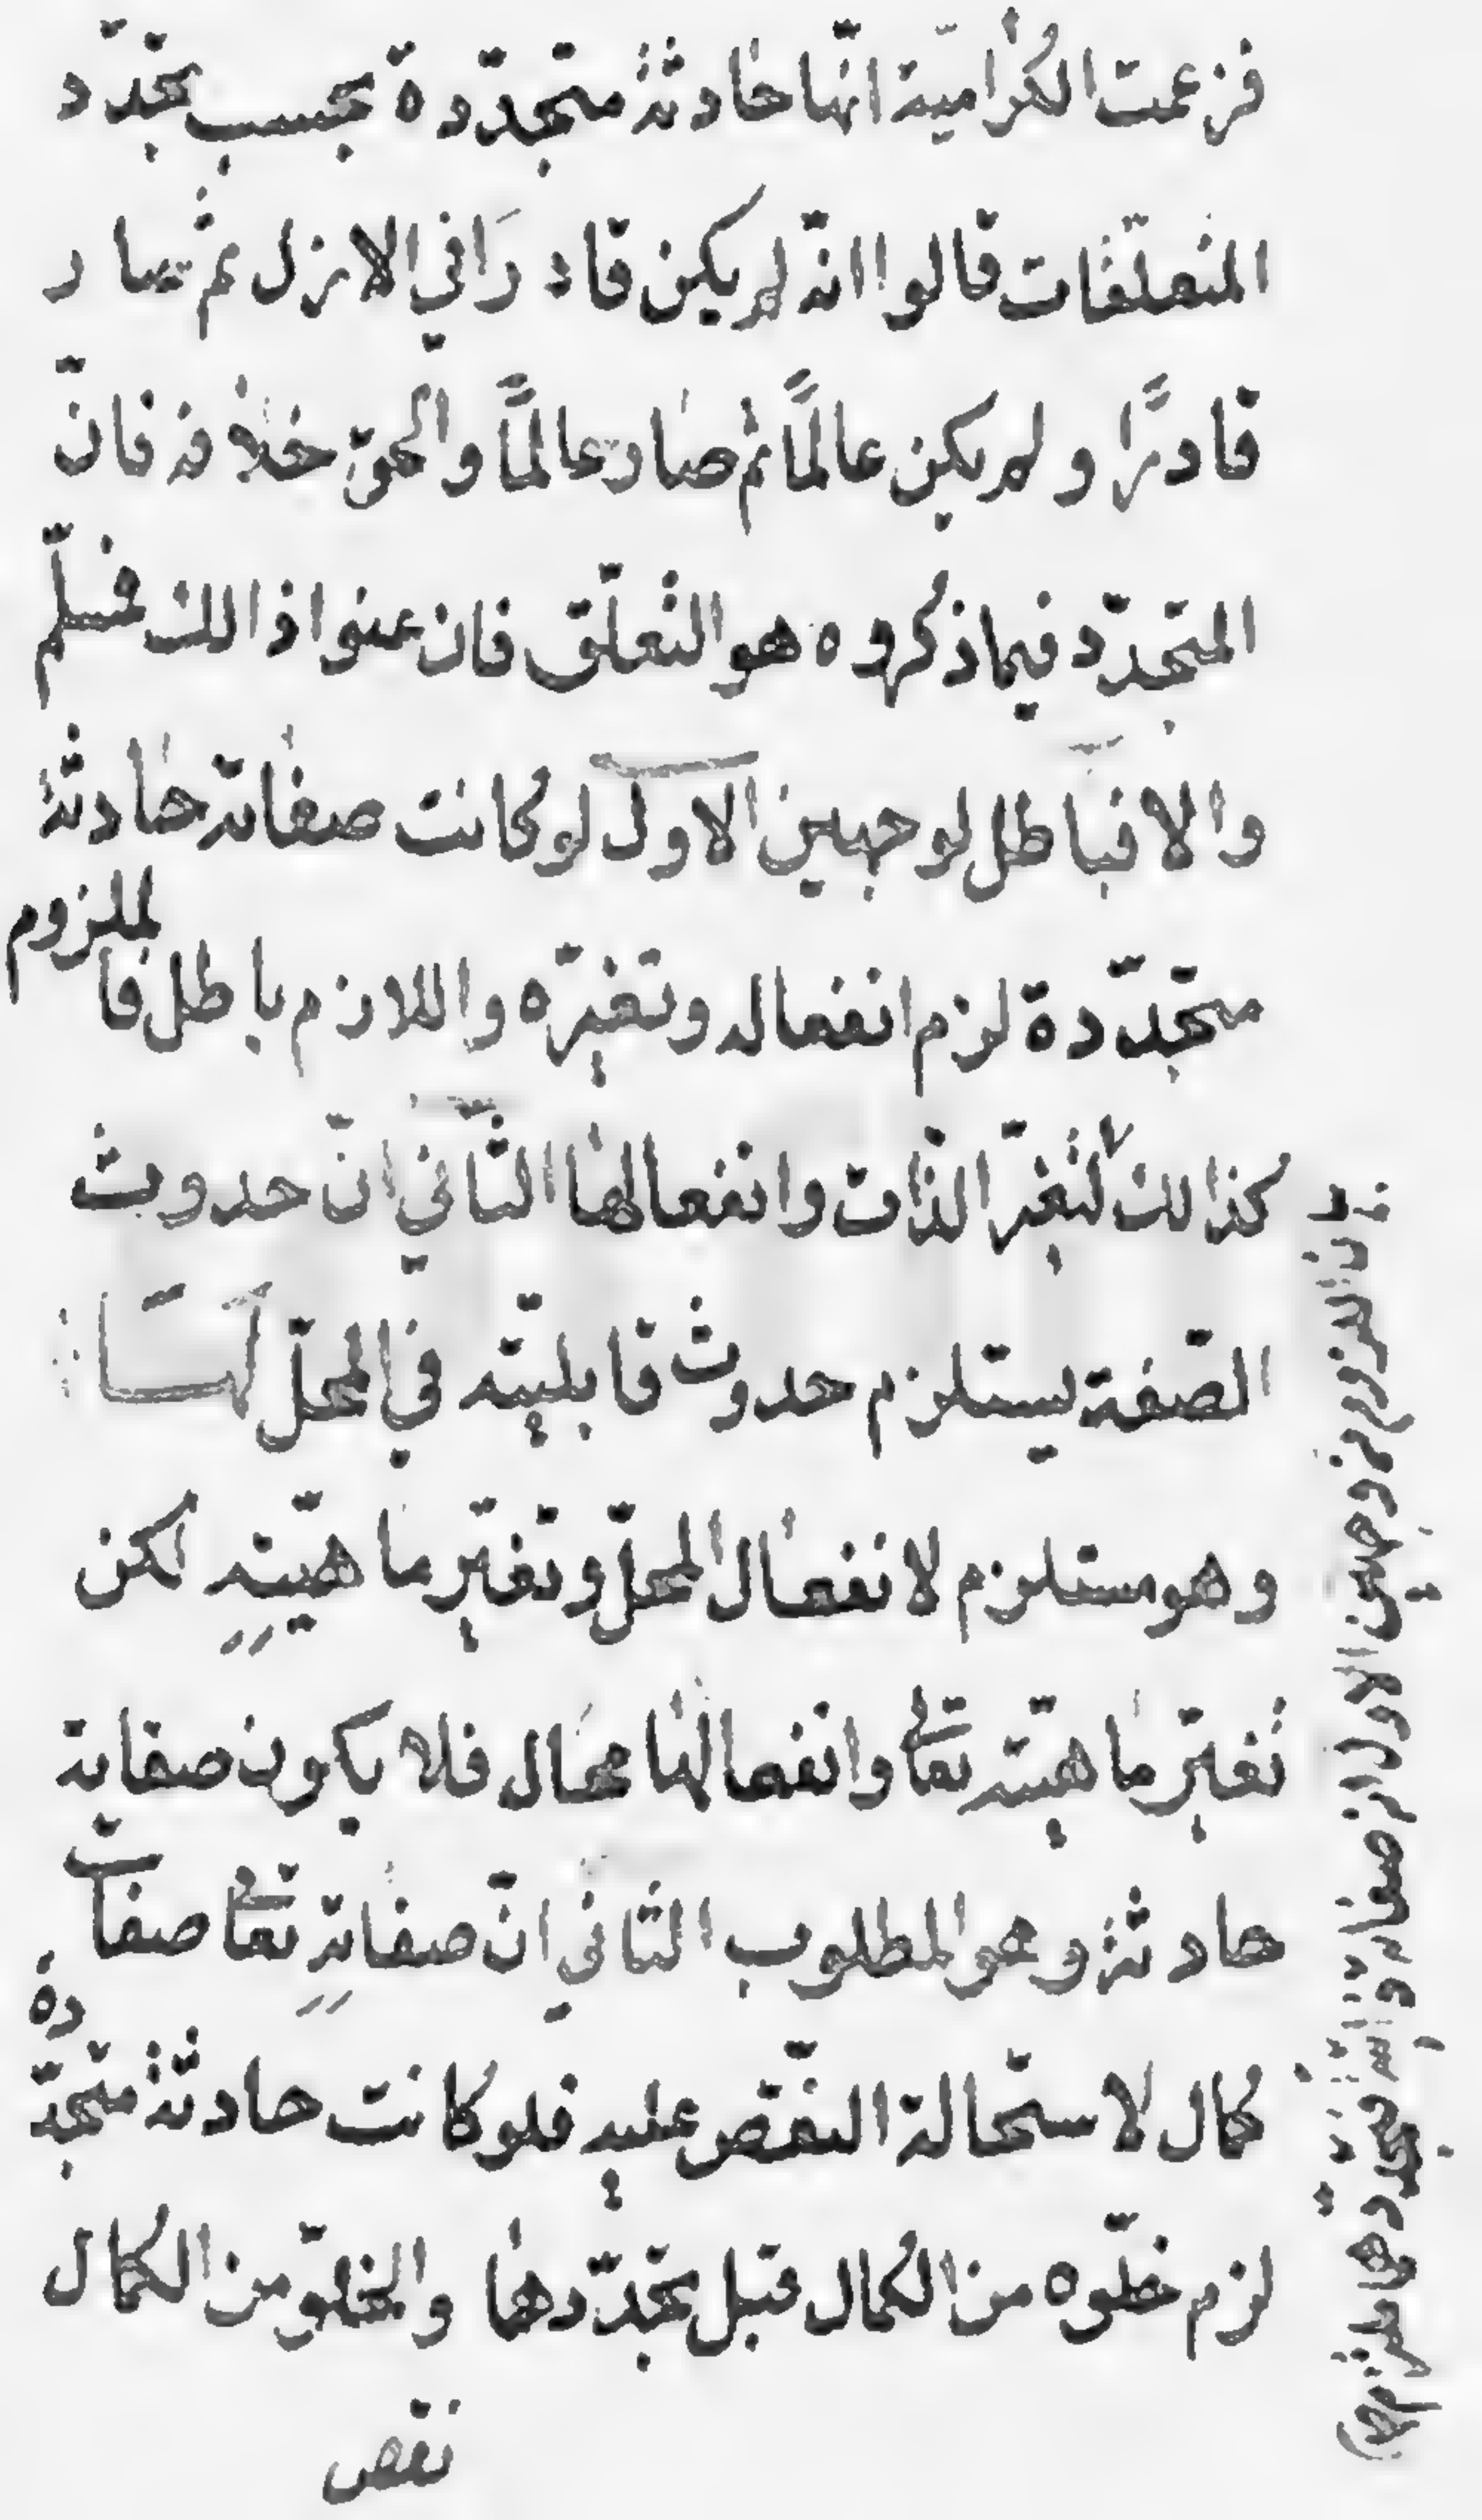 فزعمت الكُرامیّة انّها حادثةٌ متجدّدة بحسب تجدّد
المتعلّقات قالوا انّه لم يكن قادرًا في الازل ثم صار
قادرًا ولم يكن عالمًا ثم صار عالمًا والحقّ خلافه فانّ
المتجدّد فيما ذكروه هو التعلّق فان عنوا ذالك فمسلّم
والا فباطل لوجهين الاوّل لو كانت صفاته حادثةً
متجدّدة لزم انفعاله وتغيّره واللازم باطل فالملزوم
كذالك لتغيّر الذّات وانفعالها الثّاني انّ حدوث
الصّفة يستلزم حدوث قابليّته في المحلّ لهَا
وهو مستلزم لانفعال المحلّ وتغيّر ماهيّتهِ لكن
تغيّر ماهيّته تعا وانفعالها محال فلا يكون صفاته
حادثة وهو المطلوب الثاني انّ صفاتهِ تعا صفات
كمال لاستحالة النّقص عليه فلو كانت حادثةً متجدّدة
لزم خلّوه من الكمال قبل تجدّدها والخلوّ من الكمال
نقص
اللزوم من وجهين الاول ان صفاته تجدّدها